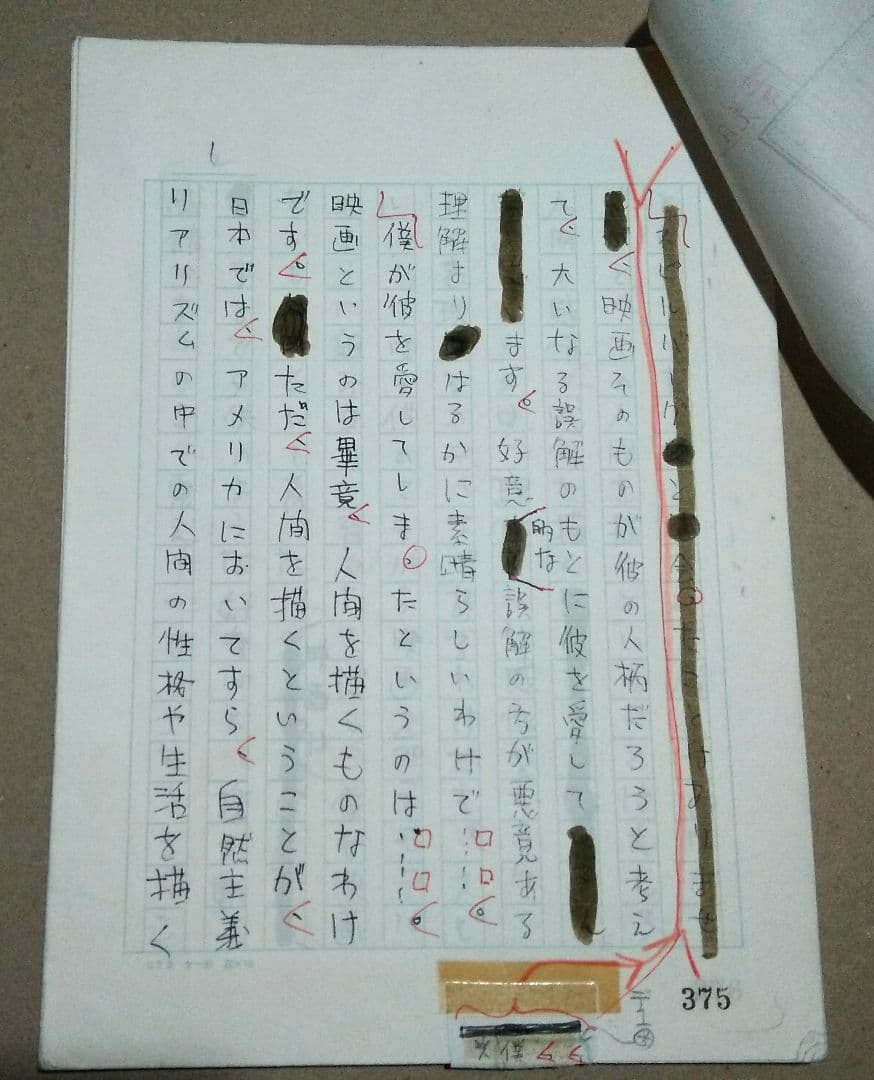 スピルバーグと会ったことはありませ
、映画そのものが彼の人柄だろうと考え
て、大いなる誤解のもとに彼を愛して
ます。好意的な誤解の方が悪意ある
理解よりはるかに素晴らしいわけで……。
僕が彼を愛してしまったというのは……。
映画というのは畢竟、人間を描くものなわけ
です。ただ、人間を描くということが、
日本では、アメリカにおいてすら、自然主義
リアリズムの中での人間の性格や生活を描く
375